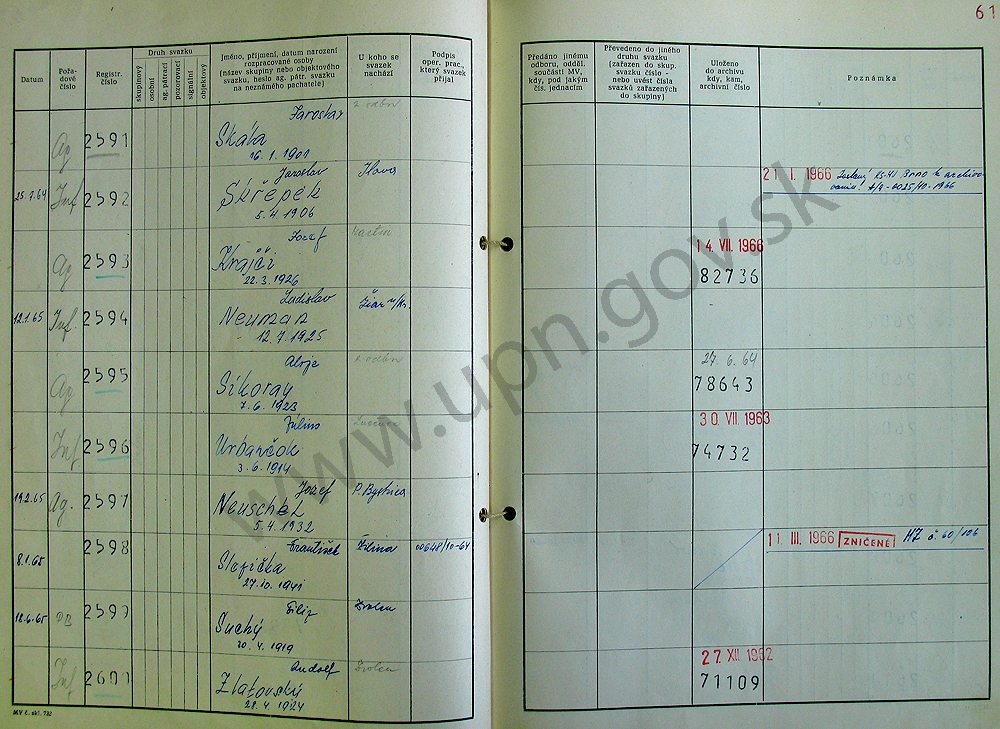 61
Datum
Pořadové číslo
Registr. číslo
Druh svazku
skupinový
osobní
ag. pátrací
pozorovací
signální
objektový
Jméno, příjmení, datum narození
rozpracované osoby
(název skupiny nebo objektového
svazku, heslo ag. pátr. svazku
na neznámého pachatele)
U koho se
svazek
nachází
Podpis
oper. prac.,
který svazek
přijal
Předáno jinému
odboru, odděl.
součásti MV,
kdy, pod jakým
čís. jednacím
Převedeno do jiného
druhu svazku
(zařazen do skup.
svazku číslo -
nebo uvést čísla
svazků zařazených
do skupiny)
Uloženo
do archivu
kdy, kam,
archivní číslo
Poznámka
Jaroslav
Ag 2591 Skála
16. 1. 1901
Jaroslav Ilava
25.7.64 Inf 2592 Skřepek
5. 4. 1906
21. I. 1966 Brno k archivo-
Jozef Martin
Ag 2593 Krajči
22. 3. 1926
14. VII. 1966
82736
Ladislav Žiar n/Hr.
12.1.65 Inf. 2594 Neuman
12. 7. 1925
Alojz
Ag 2595 Sikoray
7. 6. 1923
27. 6. 64
78643
Július
Inf 2596 Urbančok
3. 6. 1914
30. VII. 1963
74732
Jozef P. Bystrica
19.2.65 Ag. 2597 Neuschel
5. 4. 1932
František Žilina 00648/10-64
8.1.65 2598 Slofička
27. 10. 1941
11. III. 1966 ZNIČENÉ HZ č. 60/106
Filip Zvolen
18.6.65 PB 2599 Suchý
20. 4. 1919
Rudolf Zvolen
Inf 2601 Zlatovský
28. 4. 1924
27. XII. 1962
71109
MV č. skl. 732
www.upn.gov.sk